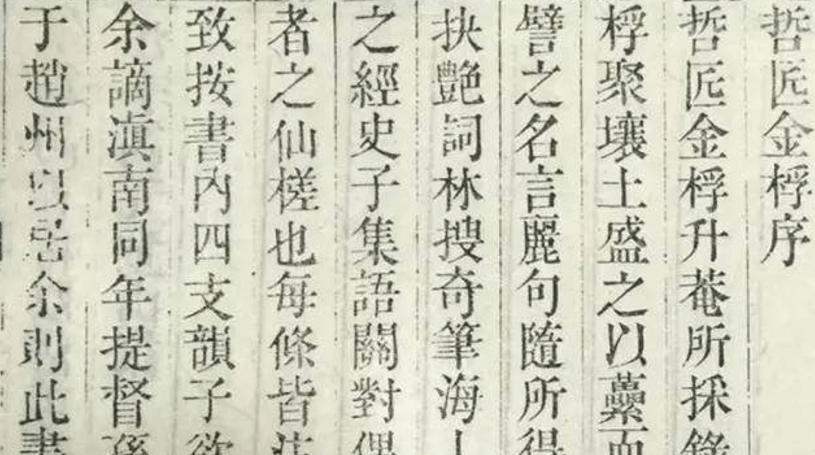 哲匠金桴序
哲匠金桴升菴所採錄
桴聚壤土盛之以虆而
譬之名言麗句隨所得
抉艷詞林搜奇筆海
之經史子集語關對偶
者之仙槎也每條皆注
致按書內四支韻子欲
余謫滇南同年提督孫
于趙州以居余則此書